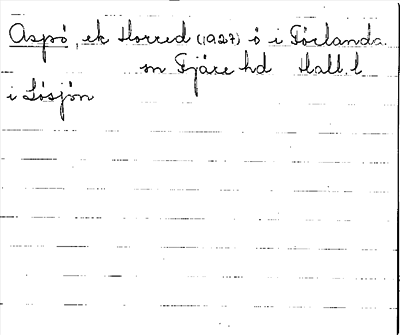 Aspö, ek Horred (1927) ö i Förlanda
sn Fjäre hd Hall. l
i Lösjön